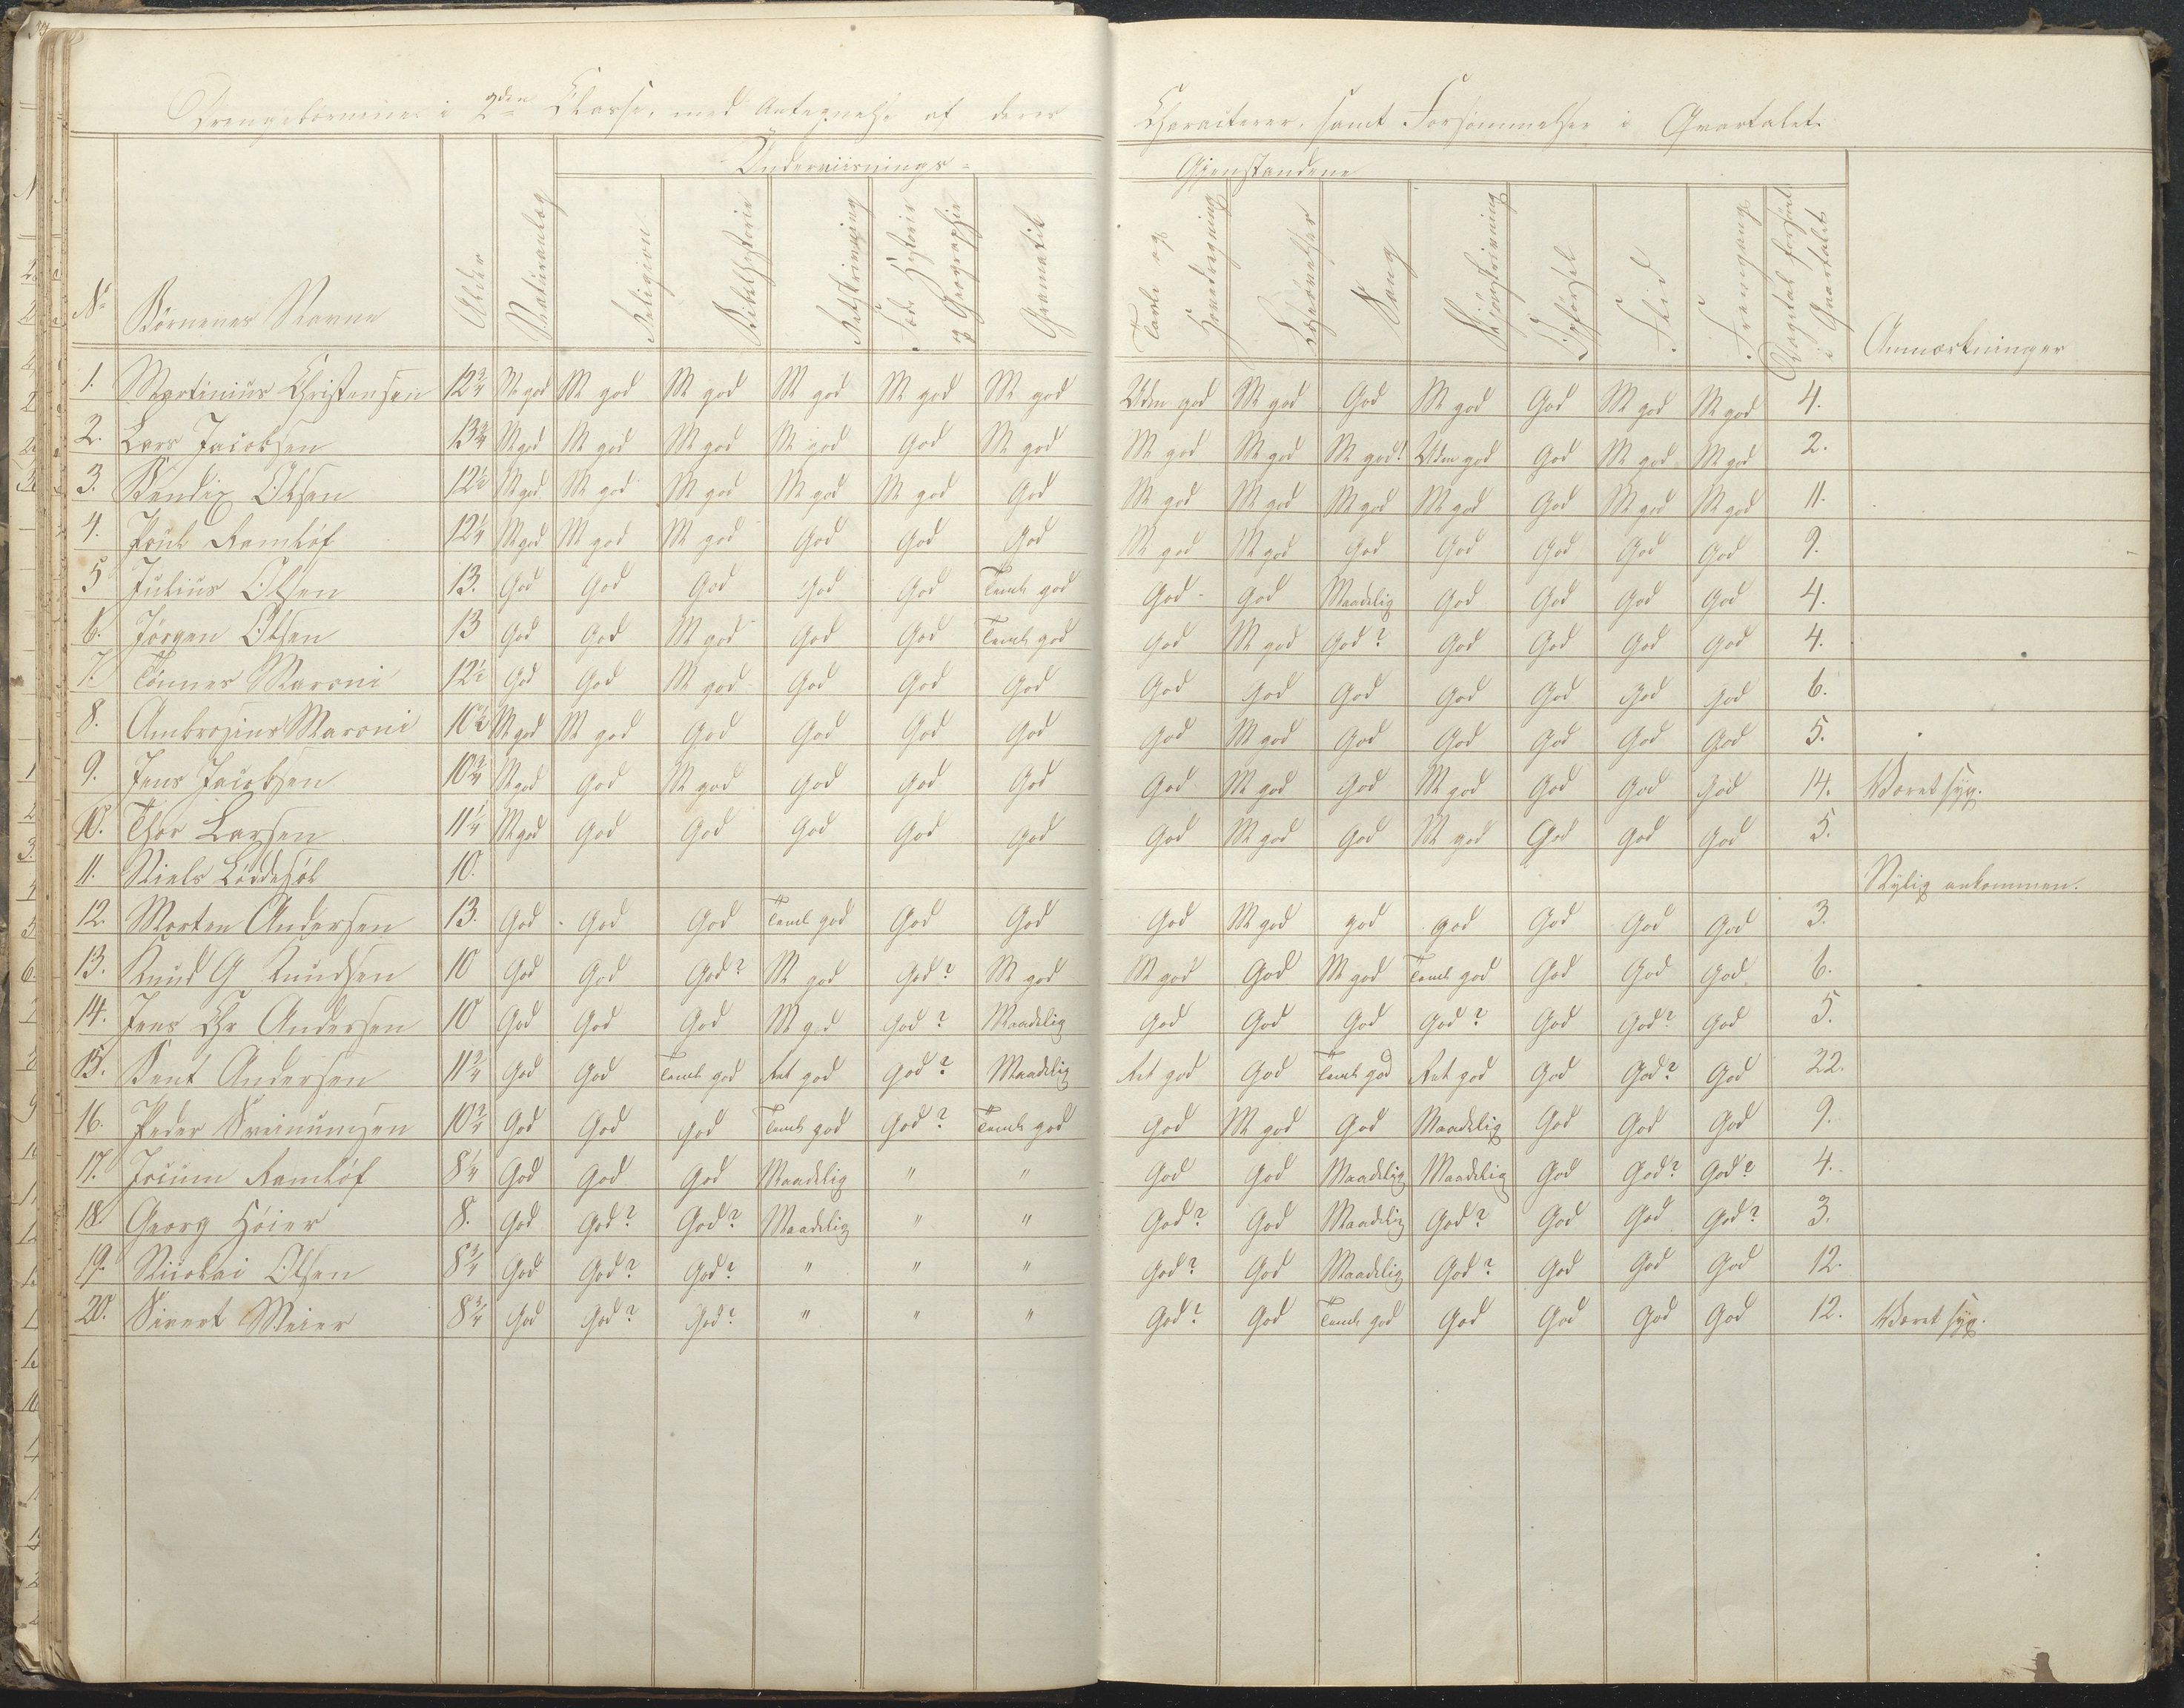 Drengebørnene i 2den Classe, med Antegnelse af deres Characterer, samt Forsømmelser i Qvartalet.
Underviisnings- Gjenstandene
No Børnenes Navne Alder Naturanlæg Religion Bibelhistorie Retskrivning Fædr. Historie og Geographie Gramatik Tavle og Hovedregning Sang Skjönskrivning Opførsel Flid Fremgang Dagetal forsømt i Qvartalet Anmærkninger
1. Martinius Christensen 12 3/4 M god M god M god M god M god M god Udm god M god God M god God M god M god 4.
2. Lars Jacobsen 13 3/4 M god M god M god M god God M god M god M god M god! Udm god God M god M god 2.
3. Bendix Olsen 12 1/2 M god M god M god M god M god God M god M god M god M god God M god M god 11.
4. Poul Ramløf 12 1/4 M god M god M god God God God M god M god God God God God God 9.
5 Julius Olsen 13. God God God God God Teml god God God Maadelig God God God God 4.
6. Jörgen Olsen 13 God God M god God God Teml god God M god God? God God God God 4.
7. Tönnes Maroni 12 1/2 God God M god God God God God God God God God God God 6.
8. Ambrosius Maroni 10 1/2 M god M god God God God God God M god God God God God God 5.
9. Jens Jacobsen 10 3/4 M god God M god God God God God M god God M god God God God 14. Været syg.
10. Thor Larsen 11 1/4 M god God God God God God God M god God M god God God God 5.
11. Niels Löddesöl 10. Nylig ankommen.
12. Morten Andersen 13. God God God Teml god God God God M god god god God God God 3.
13. Knud G Knudsen 10 God God God? M god God? M god M god God M god Teml god God God God 6.
14. Jens Chr Andersen 10 God God God M god God? Maadelig God God God God? God God? God 5.
15. Bent Andersen 11 3/4 God God Teml god Ret god God? Maadelig Ret god God Teml god Ret god God God? God 22.
16. Peder Sveinungsen 10 3/4 God God God Teml god God? Teml god God M god God Maadelig God God God 9.
17. Jocum Ramløf 8 1/4 God God God Maadelig " " God God Maadelig Maadelig God God? God? 4.
18. Georg Höier 8. God God? God? Maadelig " " God? God Maadelig God? God God God? 3.
19. Nicolai Olsen 8 3/4 God God? God? " " " God? God Maadelig God? God God God 12.
20. Sivert Meier 8 3/4 God God? God? " " " God? God Teml god God God God God 12. Været syg.